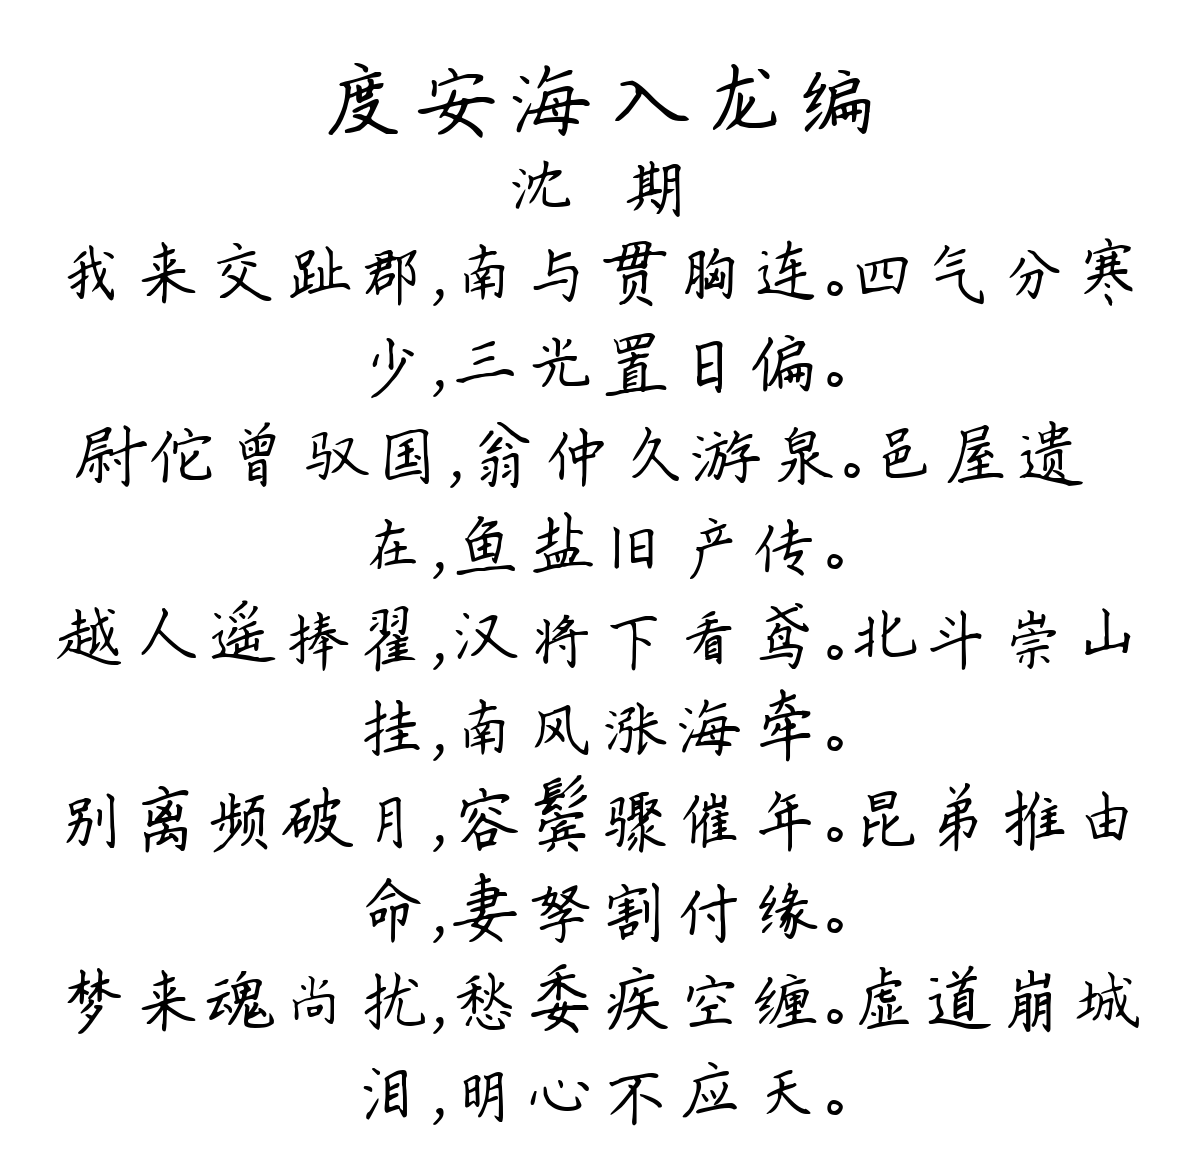 度安海入龙编
沈 期
我来交趾郡,南与贯胸连。四气分寒
少,三光置日偏。
尉佗曾驭国,翁仲久游泉。邑屋遗
在,鱼盐旧产传。
越人遥捧翟,汉将下看鸢。北斗崇山
挂,南风涨海牵。
别离频破月,容鬓骤催年。昆弟推由
命,妻孥割付缘。
梦来魂尚扰,愁委疾空缠。虚道崩城
泪,明心不应天。